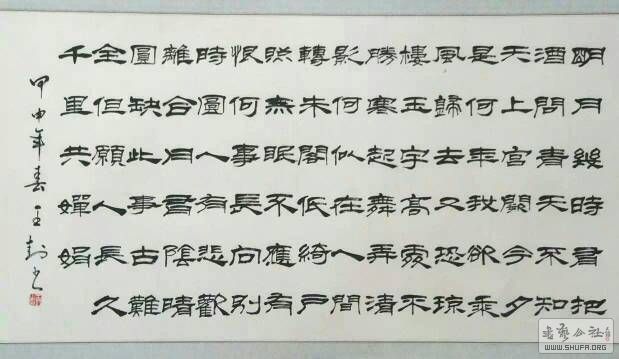 明月幾時有把
酒問青天不知
天上宮闕今夕
是何年我欲乘
風歸去又恐瓊
樓玉宇高處不
勝寒起舞弄清
影何似在人間
轉朱閣低綺戶
照無眠不應有
恨何事長向別
時圓人有悲歡
離合月有陰晴
圓缺此事古難
全但願人長久
千里共嬋娟
甲申年春王
書藝公社
WWW.SHUFA.ORG